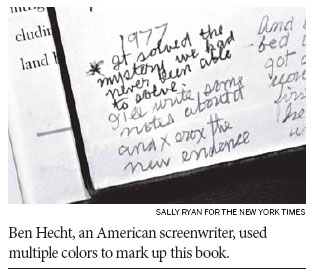 cludin
land
1977
* It solved the
mystery we had
never been able
to solve.
I'll write some
notes about it
and xerox the
new evidence
And
bed
got
SALLY RYAN FOR THE NEW YORK TIMES
Ben Hecht, an American screenwriter, used
multiple colors to mark up this book.